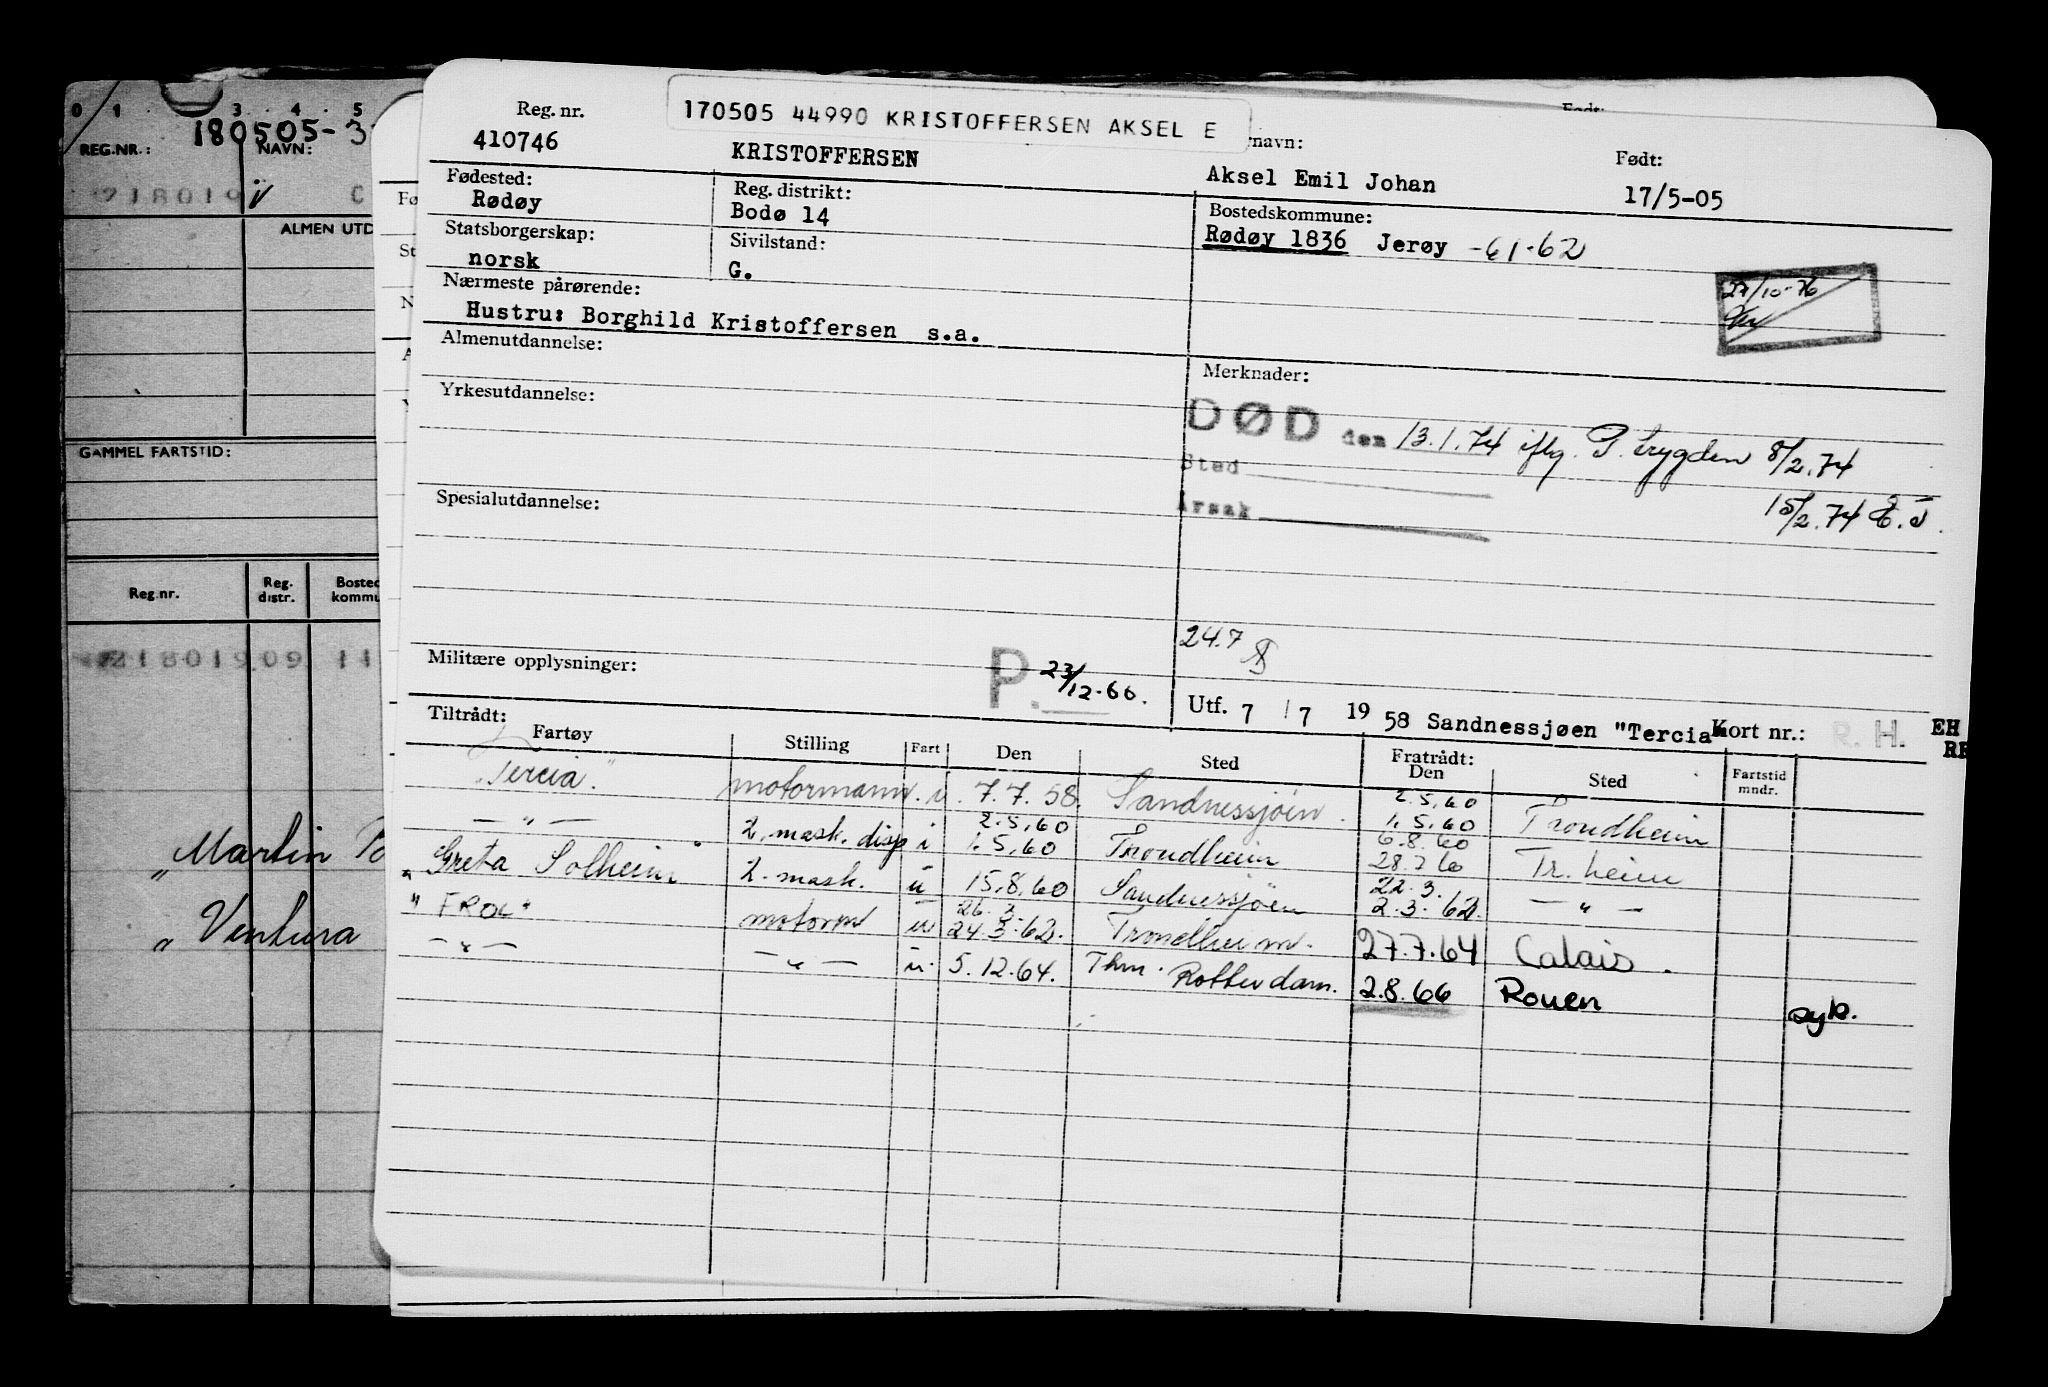 0 1 3 4 5
180505-3
REG.NR.:
NAVN:
218019
C
ALMEN UTD
GAMMEL FARTSTID:
Reg.nr.
Reg. distr.
Bosted kommu
218019 09 14
"Martin
"Ventura
Født:
170505 44990 KRISTOFFERSEN AKSEL E
Reg. nr.
410746
KRISTOFFERSEN
navn:
Aksel Emil Johan
Født:
17/5-05
Fødested:
Rødøy
Reg. distrikt:
Bodø 14
Bostedskommune:
Rødøy 1836 Jerøy -61-62
Statsborgerskap:
norsk
Sivilstand:
G.
27/10-76
Nærmeste pårørende:
Hustru: Borghild Kristoffersen s.a.
Almenutdannelse:
Merknader:
Yrkesutdannelse:
DØD den 13.1.74 iflg. P. trygden 8/2.74
Sted
15/2.74 E.J.
Årsak
Spesialutdannelse:
24.7
Militære opplysninger:
P. 23/12-66.
Utf. 7 / 7 19 58 Sandnessjøen "Tercia"
Kort nr.:
R. H.
EH
Tiltrådt:
Fartøy Stilling Fart Den Sted
Fratrådt:
Den Sted
Fartstid mndr.
"Tercia" motormann. u. 7.7.58. Sandnessjøen. 2.5.60 1.5.60 Trondheim
— " — 2. mask. disp i 2.5.60 1.5.60 Trondheim 6.8.60 28.7.60 Tr. heim
"Greta Solheim" 2. mask. u 15.8.60 Sandnessjøen 22.3. 2.3.62. — " —
"FROL" motorm u 26.3. 24.3.62. Trondheim. 27.7.64 Calais.
— " — — " — u. 5.12.64. Thm. Rotterdam. 2.8.66 Rouen syk.